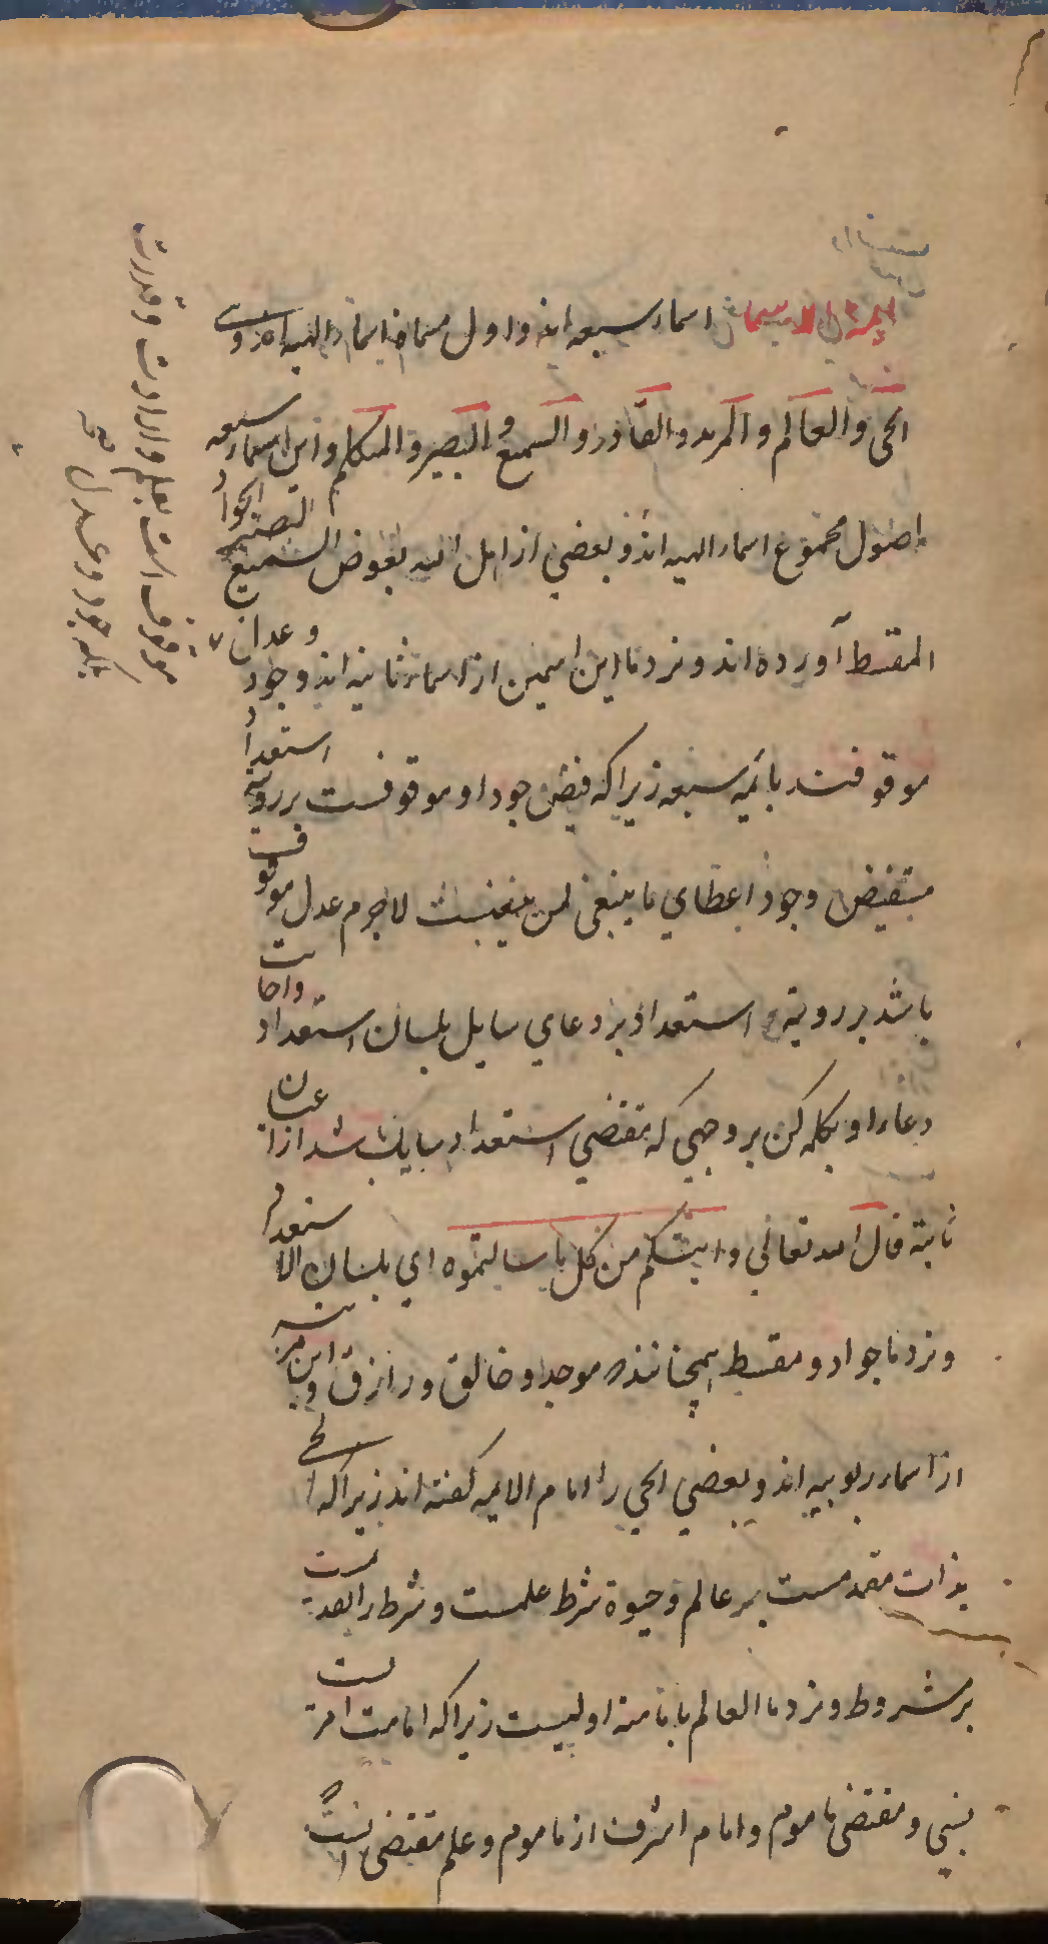 ائمة الاسماء اسماء سبعه اند و اول مسماة باسماء الهیه اند و هی
الحی و العالم و المرید و القادر و السمیع و البصیر و المتکلم و این اسماء سبعه
اصول مجموع اسماء الهیه اند و بعضی از اهل الله بعوض السمیع البصیر الجواد
المقسط آورده اند و نزد ما این اسمین از اسماء ثانیه اند و جود و عدل
موقوفند بائمه سبعه زیرا که فیض جود او موقوفست بر رویة استعداد
مستفیض و جود اعطای ما ینبغی لمن ینبغیست لاجرم عدل موقوف
باشد بر رویة استعداد بر دعای سایل بلسان استعداد و اجابت
دعاء او بکلمه کن بر وجهی که مقتضی استعداد سایل باشد از اعیان
ثابته قال الله تعالی و اتیکم من کل ما سالتموه ای بلسان الاستعداد
و نزد ما جواد و مقسط همچنانند که موجد و خالق و رازق و این مرتبه
از اسماء ربوبیه اند و بعضی الحی را امام الایمه گفته اند زیرا که الحی
بذات مقدمست بر عالم و حیوة شرط علمست و شرط را تقدمست
بر مشروط و نزد ما العالم بامامت اولیست زیرا که امامت امریست
نسبی و مقتضی ماموم و امام اشرف از ماموم و علم مقتضی آنست که
موقوف است بعلم و ارادت و قدرت
بلکه جود و عدل